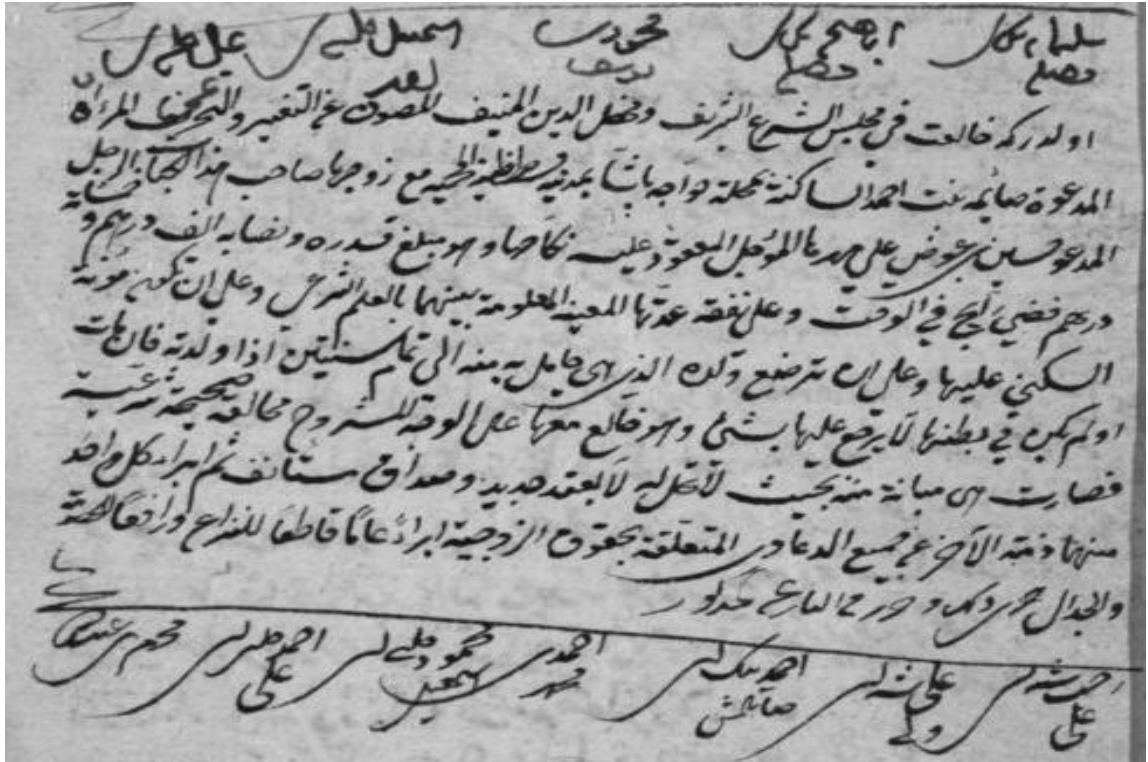 سليمان بن كامل ابراهيم محمود بن اسمعيل چلبى على چلبى
مصلح يوسف
اولدركه خالعت في مجلس الشرع الشريف ومحفل الدين المنيف المصون عن التغيير والتحريف المرأة
المدعوة صائمه بنت احمد الساكنة بمحلة خواجه پاشا بمدينة قسطنطنية المحميه مع زوجها صاحب هذا الكتاب الرجل
المدعو حسين بن عوض على مهرها المؤجل المعقود عليه نكاحها وهو مبلغ قدره ونصابه الف درهم و
درهم فضي رايج في الوقت وعلى نفقة عدتها المعينه المعلومة بينهما بالعلم الشرعى وعلى ان تكون مؤنة
السكنى عليها وعلى ان ترضع ولده الذي هى حامل به منه الى تمام سنتين اذا ولدته فان مات
او لم يكن في بطنها لا يرجع عليها بشئ وهو خالع معها على الوجه المشروح مخالعة صحيحة شرعية
فصارت هى مبانة منه بحيث لا تحل له الا بعقد جديد وصداق مستانف ثم ابراء كل واحد
منهما ذمة الآخر عن جميع الدعاوى المتعلقة بحقوق الزوجية ابراءً عامًا قاطعًا للنزاع ورافعًا للخصومة
والجدال جرى ذلك وحرر في التاريخ المذكور
احمد بن على على بن ولى احمد بك بن احمد بن محمود چلبى بن اسمعيل احمد چلبى بن على محمد بن عبدالله